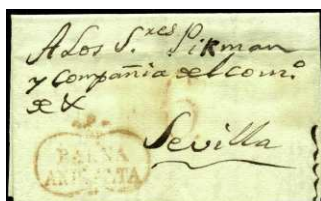 A Los S.res Pikman
y Compañia del com.o
de &
Sevilla
BAENA
ANDAL. ALTA